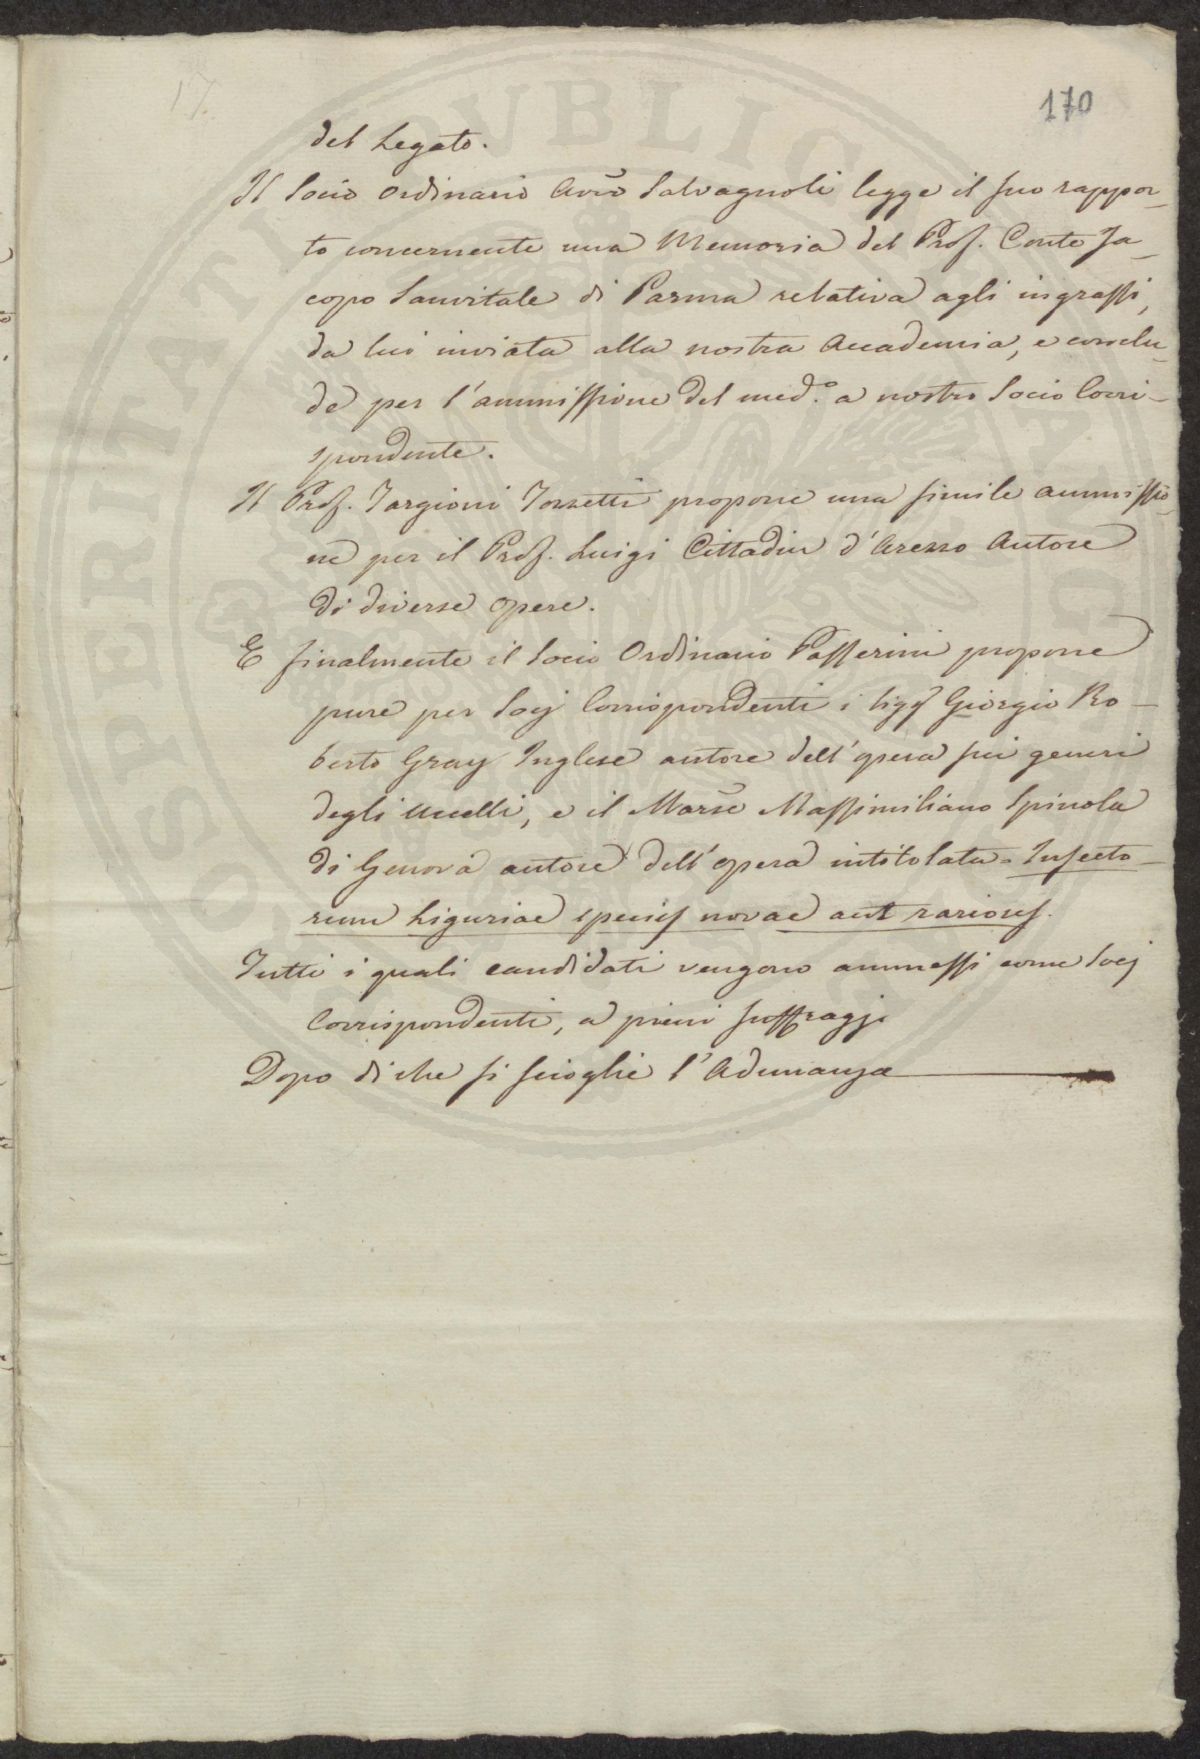 170
17
del Legato.
Il Socio Ordinario Avv̄o Salvagnoli legge il suo rappor-
to concernente una Memoria del Prof. Conte Ja-
copo Sanvitale di Parma relativa agli ingrassi,
da lui inviata alla nostra Accademia, e conclu-
de per l'ammissione del med.º a nostro Socio Corri-
spondente.
Il Prof. Targioni Tozzetti propone una simile ammissio-
ne per il Prof. Luigi Cittadin d'Arezzo Autore
di diverse opere.
E finalmente il Socio Ordinario Passerini propone
pure per Socj Corrispondenti i Sigg Giorgio Ro-
berto Gray Inglese autore dell'opera sui generi
degli Uccelli, e il Marse Massimiliano Spinola
di Genova autore dell'opera intitolata = Insecto-
rum Liguriae species novae aut rariores.
Tutti i quali candidati vengono ammessi come Socj
Corrispondenti, a pieni suffragj.
Dopo di che si scioglie l'Adunanza